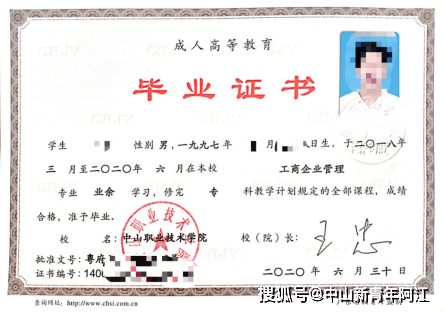 成人高等教育
毕业证书
学生 性别 男，一九九七年 月 日生，于二〇一八年
三 月至二〇二〇年 六 月在本校 工商企业管理
专业 业余 学习，修完 专 科教学计划规定的全部课程，成绩
合格，准予毕业。
校 名：中山职业技术学院 校（院）长：
批准文号：粤府
证书编号：140
二〇二〇年 六 月三十日
查询网址：http://www.chsi.com.cn
搜狐号@中山新青年阿江